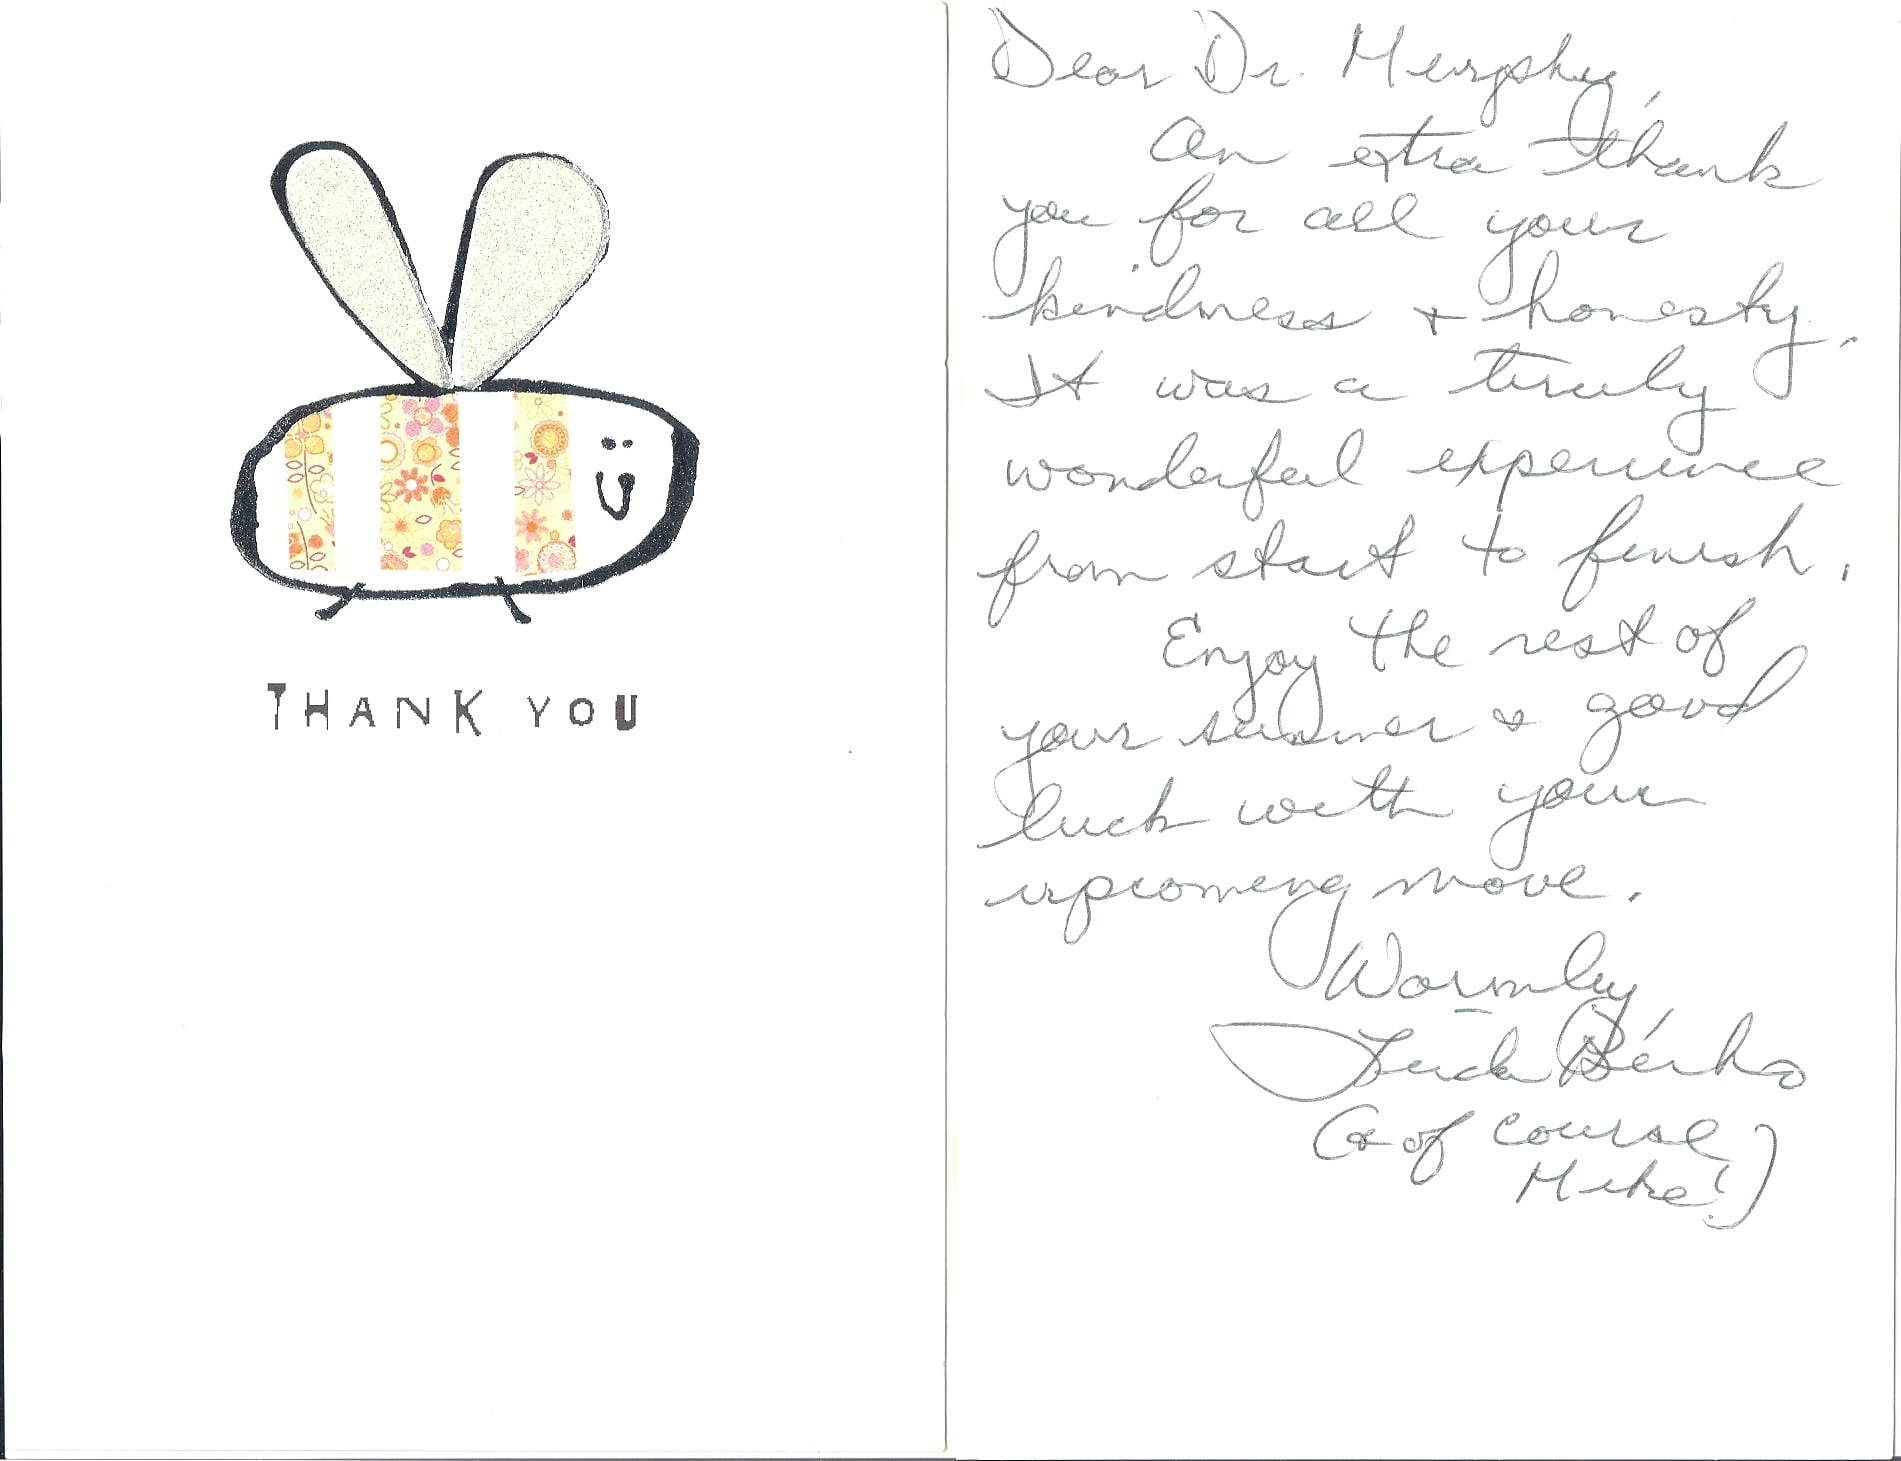 THANK YOU
Dear Dr. Murphy,
An extra thank
you for all your
kindness + honesty.
It was a truly
wonderful experience
from start to finish.
Enjoy the rest of
your summer & good
luck with your
upcoming move.
Warmly,
Linda
(& of course,
Mike!)